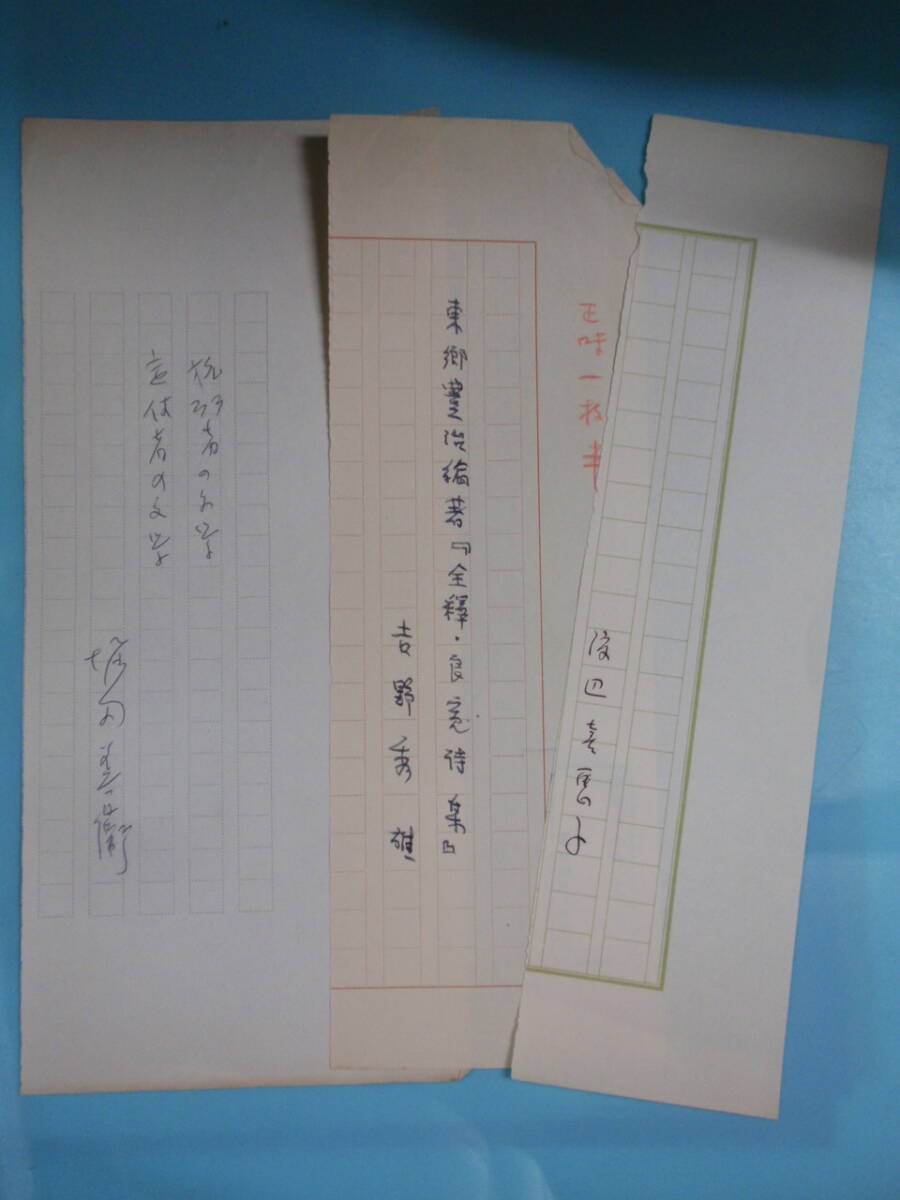 渡辺喜恵子
正味一枚半
東郷豊治編著『全釋・良寛詩集』
吉野秀雄
者の文学
者の文学
堀田善衛